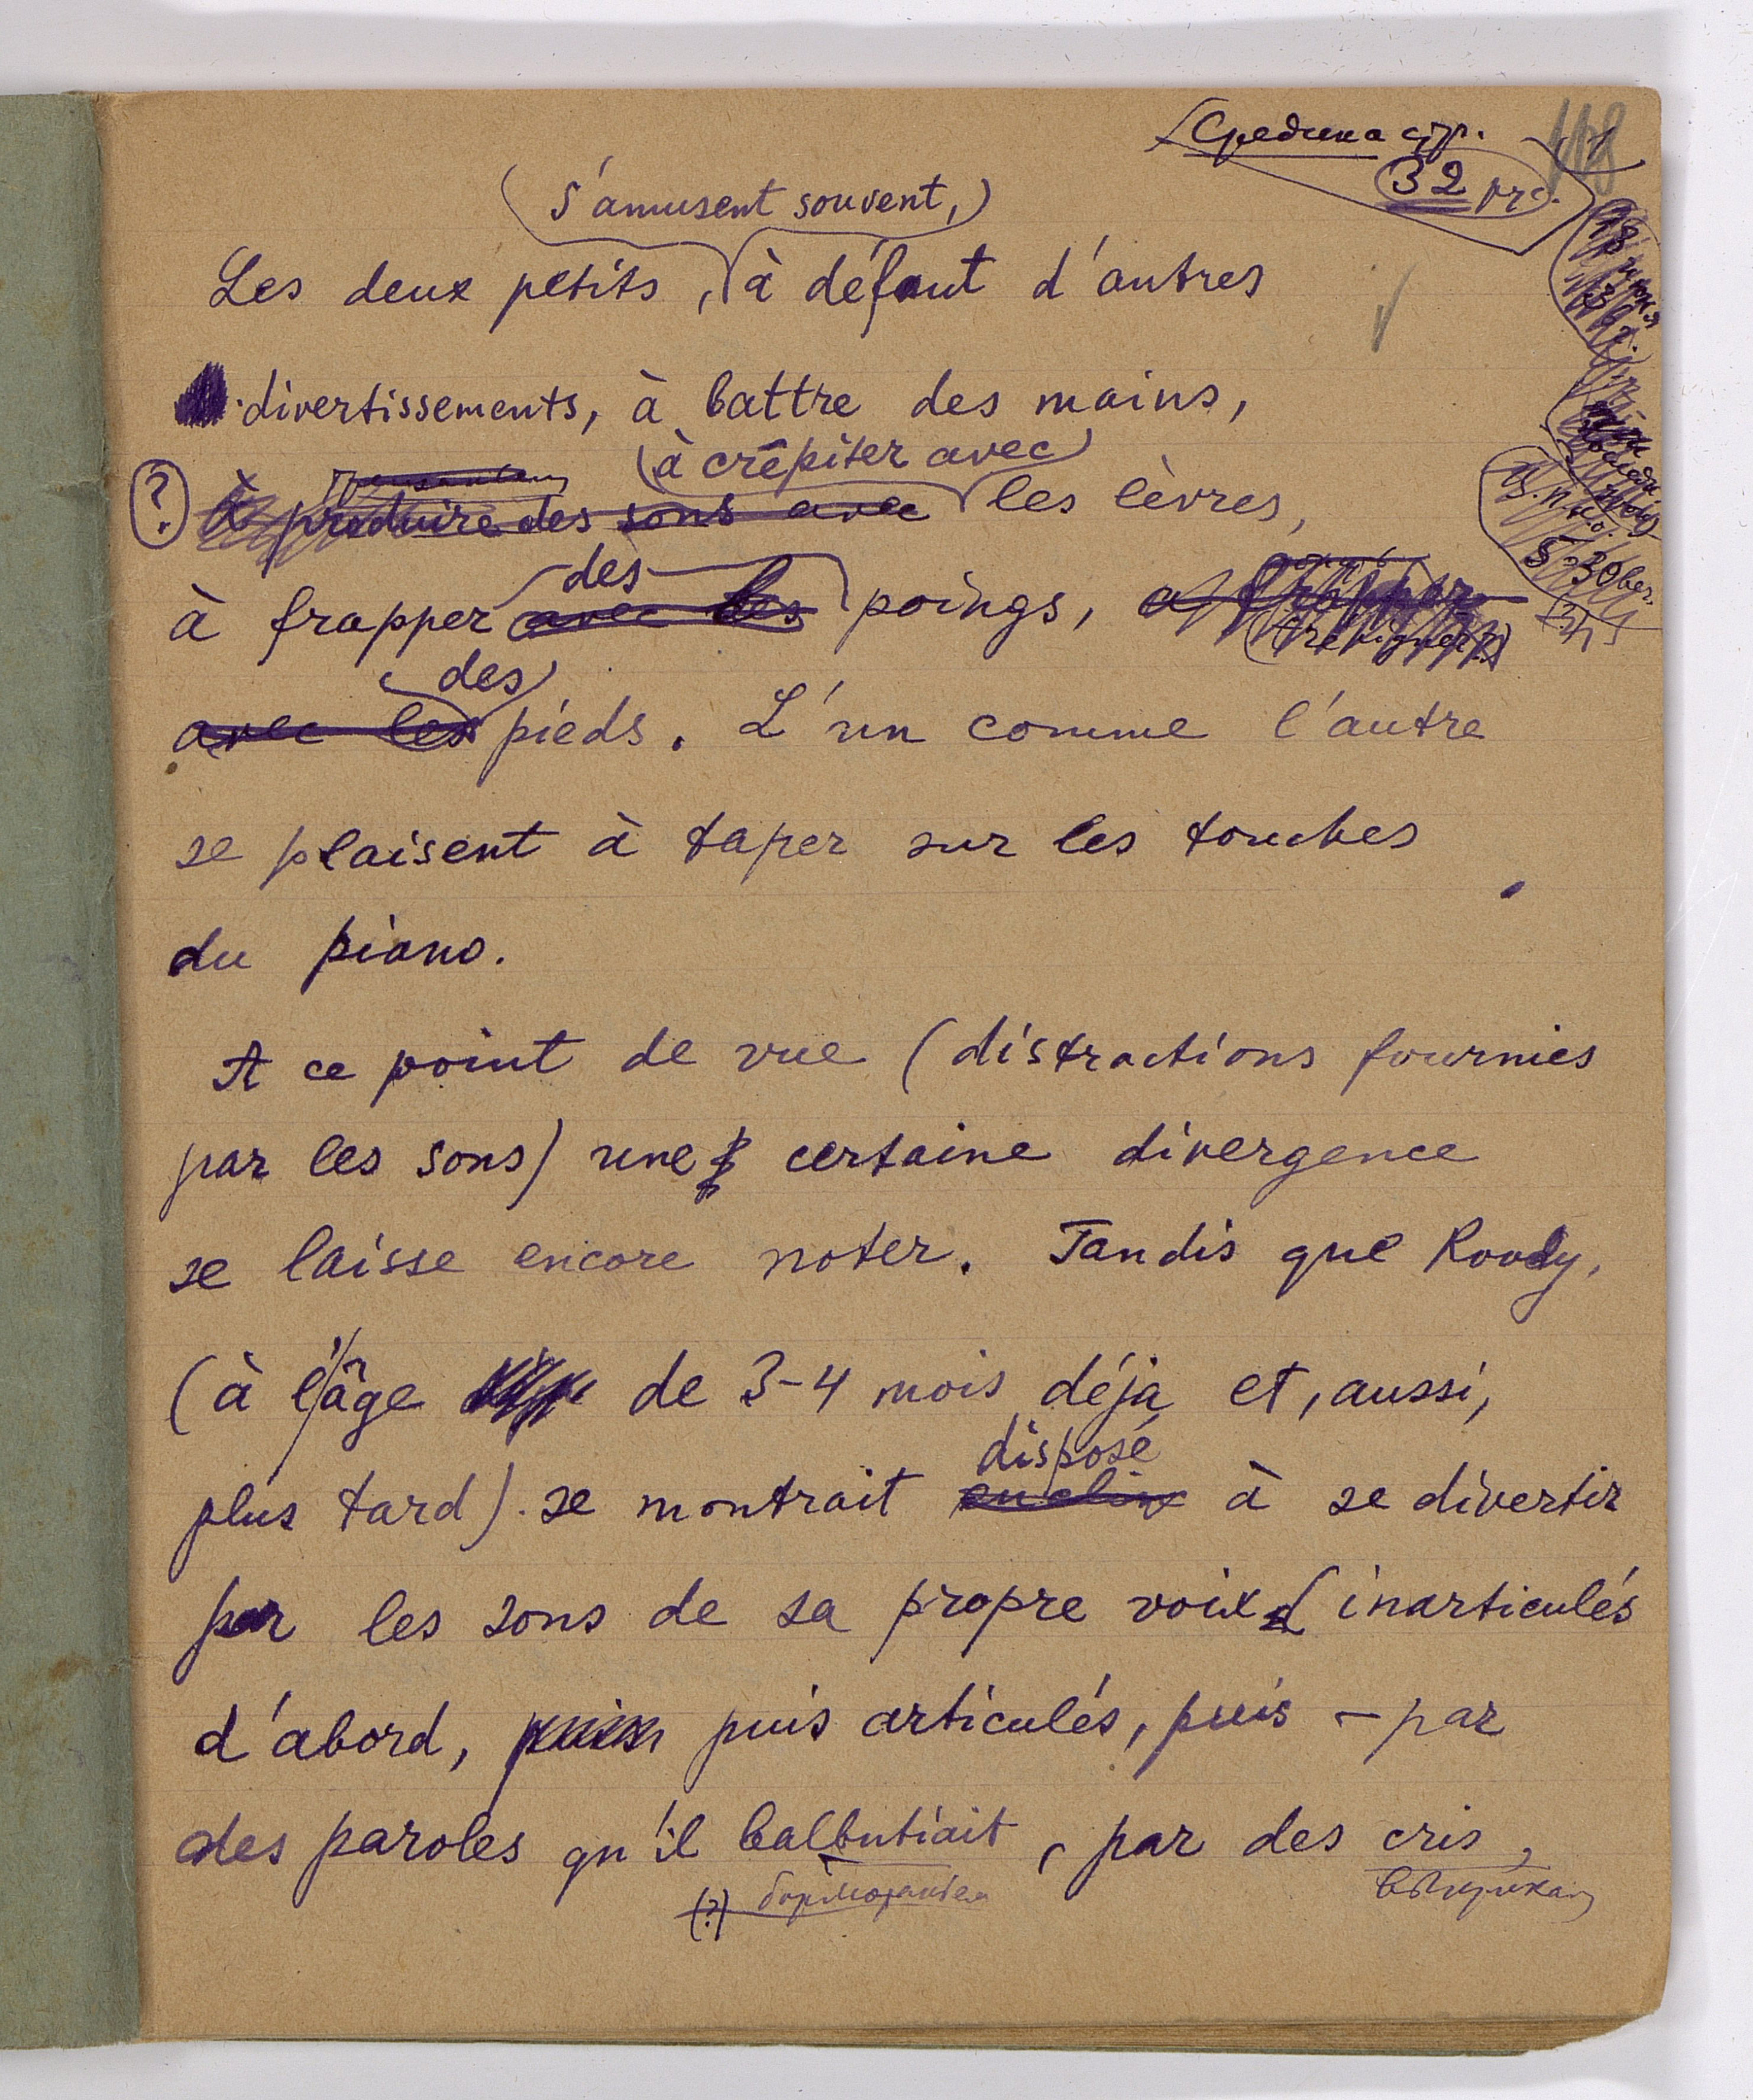 Средина стр.
32
118
s'amusent souvent,
Les deux petits, à défaut d'autres
divertissements, à battre des mains,
à crépiter avec
(?) à produire des sons avec les lèvres,
des
à frapper avec les poings, à frapper
(trépigner?)
des
avec les pieds. L'un comme l'autre
se plaisent à taper sur les touches
du piano.
A ce point de vue (distractions fournies
par les sons) une certaine divergence
se laisse encore noter. Tandis que Roody,
(à l'âge de 3-4 mois déjà et, aussi,
disposé
plus tard) se montrait enclin à se divertir
par les sons de sa propre voix (inarticulés
d'abord, puis articulés, puis – par
des paroles qu'il balbutiait, par des cris,
(?)